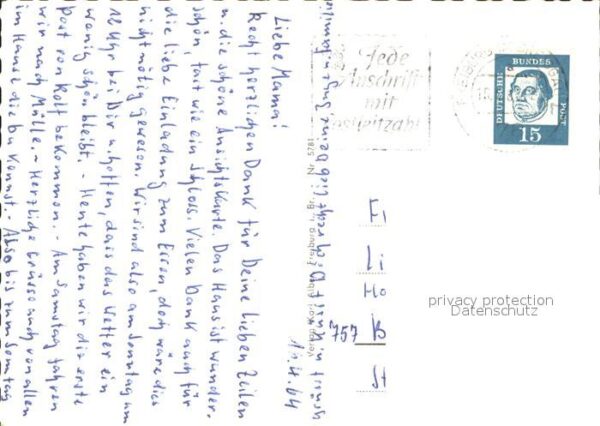 19.4.64
Liebe Mama!
Recht herzlichen Dank für Deine lieben Zeilen
u. die schöne Ansichtskarte. Das Haus ist wunder-
schön, fast wie ein Schloss. Vielen Dank auch für
die liebe Einladung zum Essen, doch wäre dies
nicht nötig gewesen. Wir sind also am Sonntag um
12 Uhr bei Dir u. hoffen, dass das Wetter ein
wenig schön bleibt. - Heute haben wir die erste
Post von Rolf bekommen. - Am Samstag fahren
wir nach Mülle. - Herzliche Grüsse auch von allen
im Hause die b. kennst. Also bis zum Sonntag
recht lieb Deine
Verlag Karl Alber Freiburg i. Br. Nr 5781
Jede
Anschrift
mit
Postleitzahl
DEUTSCHE
BUNDES
POST
15
Fr
Li
Ho
757 B
St
privacy protection
Datenschutz